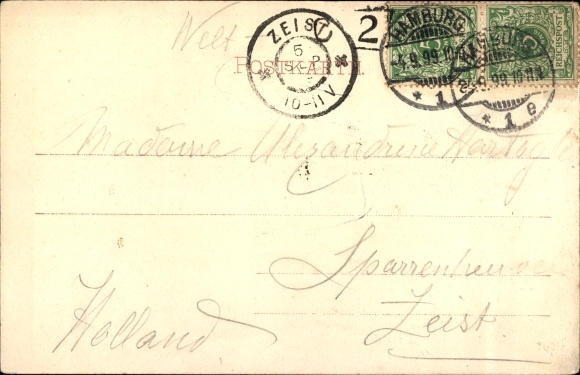 Welt-
POSTKARTE
ZEIST
5
SEP
10-11 V
2
HAMBURG
4.9.99.10
* 1
HAMBURG
9.99.10-11
* 1 e
REICHSPOST
Madame Alexandrine
Holland
Zeist